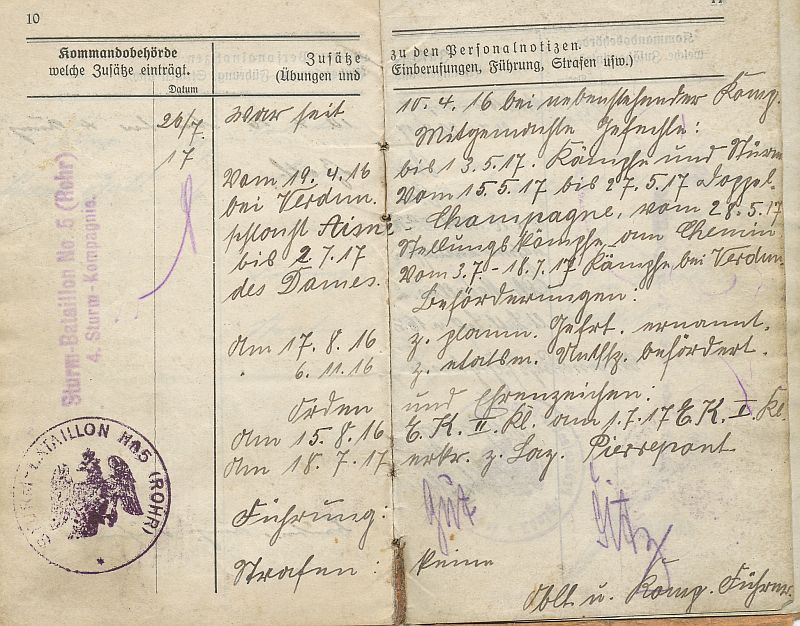 10
11
Kommandobehörde
welche Zusätze einträgt.
Datum
Zusätze zu den Personalnotizen.
(Übungen und Einberufungen, Führung, Strafen usw.)
26/7.
17
Sturm-Bataillon No. 5 (Rohr)
4. Sturm-Kompagnie.
War seit 10.4.16 bei nebenstehender Komp.
Mitgemachte Gefechte:
Vom 19.4.16 bis 13.5.17. Kämpfe und Sturm
bei Verdun. Vom 15.5.17 bis 27.5.17 Doppel-
schlacht Aisne-Champagne, vom 28.5.17
bis 2.7.17 Stellungskämpfe am Chemin
des Dames. Vom 3.7.-18.7.17 Kämpfe bei Verdun.
Beförderungen:
Am 17.8.16 z. planm. Gefrt. ernannt.
" 6.11.16 z. etatsm. Untffz. befördert.
Orden und Ehrenzeichen:
Am 15.8.16 E.K. II. Kl. am 1.7.17 E.K. I. Kl.
Am 18.7.17 erkr. z. Laz. Pierrepont
Führung: Gut
Strafen: keine
Oblt. u. Komp. Führer.
STURM-BATAILLON No 5 (ROHR)